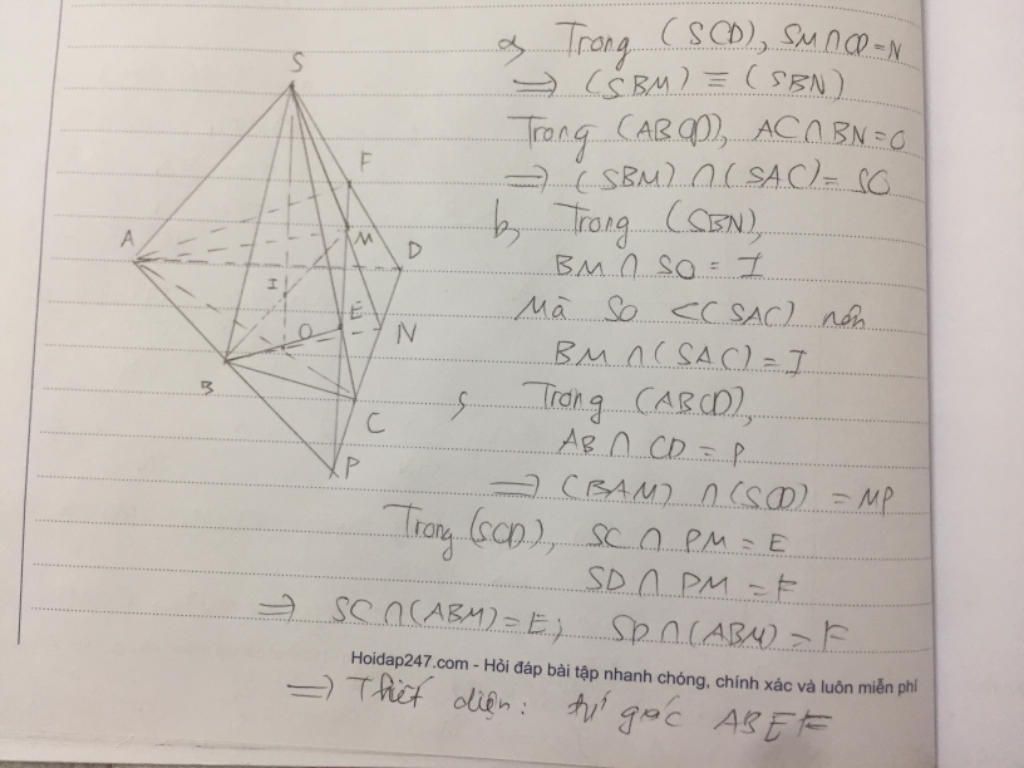 a, Trong (SCD), SM∩CD=N
⇒ (SBM) ≡ (SBN)
Trong (ABCD), AC∩BN=O
⇒ (SBM) ∩ (SAC) = SO
b, Trong (SBN),
BM ∩ SO = I
Mà SO ⊂ (SAC) nên
BM ∩ (SAC) = I
c, Trong (ABCD),
AB ∩ CD = P
⇒ (BAM) ∩ (SCD) = MP
Trong (SCD), SC ∩ PM = E
SD ∩ PM = F
⇒ SC∩(ABM)=E; SD∩(ABM)=F
Hoidap247.com - Hỏi đáp bài tập nhanh chóng, chính xác và luôn miễn phí
⇒ Thiết diện: tứ giác ABEF
S
F
A
M
D
I
E
O
N
B
C
P